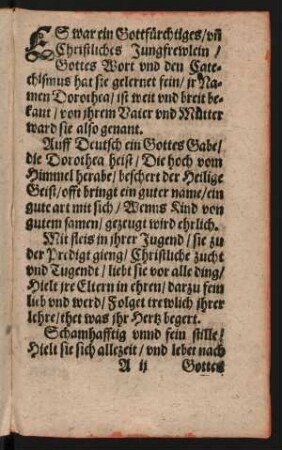 ES war ein Gottfürchtiges/ vñ
Christliches Jungfrewlein/
Gottes Wort vnd den Cate-
chismus hat sie gelernet fein/ jr Na-
men Dorothea/ ist weit vnd breit be-
kant/ von jhrem Vater vnd Mutter
ward sie also genant.
Auff Deutsch ein Gottes Gabe/
die Dorothea heist/ Die hoch vom
Himmel herabe/ beschert der Heilige
Geist/ offt bringt ein guter name/ ein
gute art mit sich/ Wenns Kind von
gutem samen/ gezeugt wird ehrlich.
Mit fleis in jhrer Jugend/ sie zu
der Predigt gieng/ Christliche zucht
vnd Tugendt/ liebt sie vor alle ding/
Hielt jre Eltern in ehren/ darzu fein
lieb vnd werd/ Folget trewlich jhrer
lehre/ thet was jhr Hertz begert.
Schamhafftig vnnd fein stille/
Hielt sie sich allezeit/ vnd lebet nach
A ij Gottes